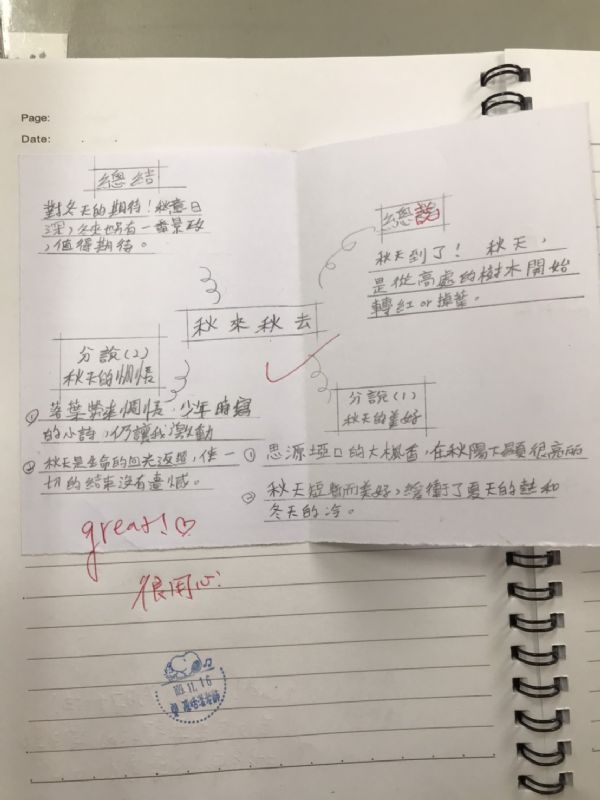 Page:
Date:
總結
對冬天的期待！秋意日
深，冬來也另有一番景致
，值得期待。
總說
秋天到了！ 秋天，
是從高處的樹木開始
轉紅or掉葉。
秋來秋去
分說(2)
秋天的惆悵
① 落葉帶來惆悵，少年時寫
的小詩，仍讓我激動
② 秋天是生命的回光返照，使一
切的結束沒有遺憾。
分說(1)
秋天的美好
① 思源埡口的大楓香，在秋陽下顯很亮麗
② 秋天短暫而美好，緩衝了夏天的熱和
冬天的冷。
great!♡
很用心!
109.11.16